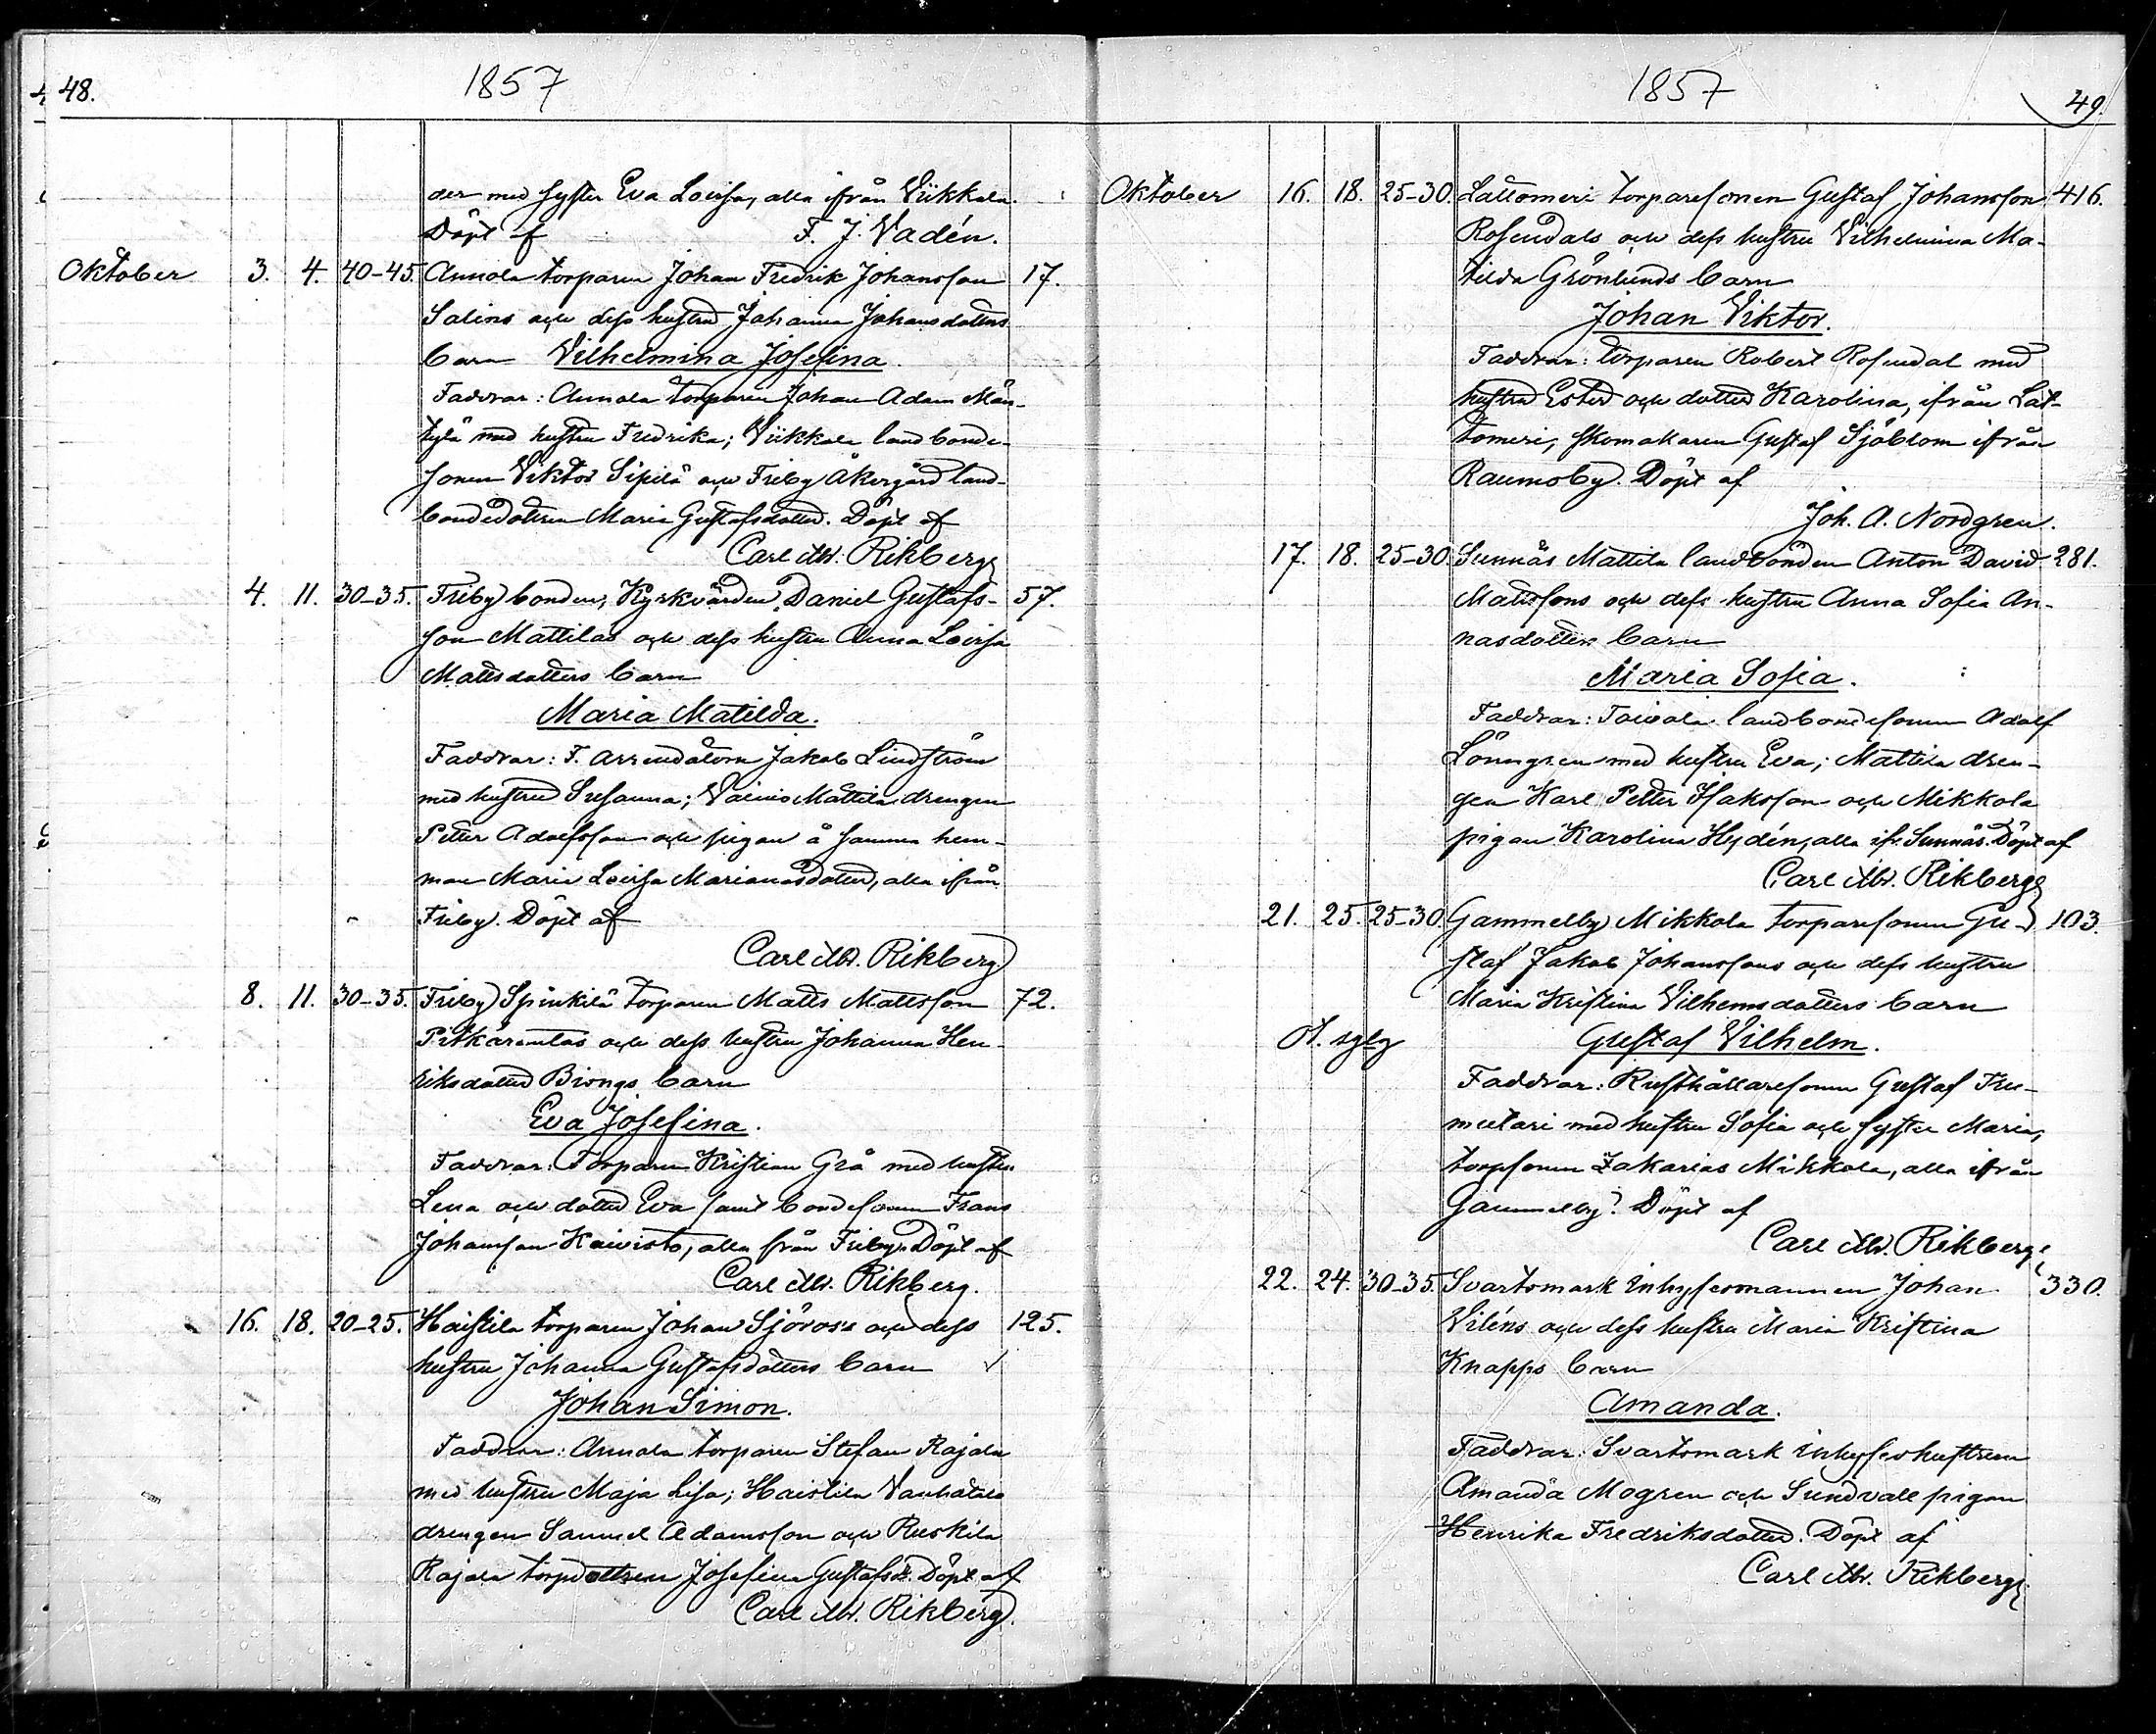 48.
1857
der med syster Eva Lovisa, alla ifrån Viikkala.
Döpt af F. J. Vadén.
Oktober 3. 4. 40-45. Annola torparen Johan Fredrik Johansson 17.
Salins och dess hustru Johanna Johansdotters
barn Vilhelmina Josefina.
Faddrar: Annola torparen Johan Adam Män-
tylä med hustru Fredrika; Viikkala landbonde-
sonen Viktor Sipilä och Friby Åkergård land-
bondedottren Maria Gustafsdotter. Döpt af
Carl Mr. Rikberg
4. 11. 30-35. Friby bonden, Kyrkvärden Daniel Gustafs- 57.
son Mattilas och dess hustru Anna Lovisa
Mattsdotters barn
Maria Matilda.
Faddrar: F. Arrendatorn Jakob Lindström
med hustru Susanna; Vainio Mattila drengen
Petter Adolfsson och pigan å samma hem-
man Maria Lovisa Mariansdotter, alla ifrån
Friby. Döpt af
Carl Mr. Rikberg
8. 11. 30-35. Friby Spinkilä torparen Matts Mattsson 72.
Pitkärantas och dess hustru Johanna Hen-
riksdotter Biongs barn
Eva Josefina.
Faddrar: Torparen Kristian Grå med hustru
Lena och dotter Eva samt bondesonen Frans
Johansson Koivisto, alla från Friby. Döpt af
Carl Mr. Rikberg.
16. 18. 20-25. Haistila torparen Johan Sjöros's och dess 125.
hustru Johanna Gustafsdotters barn
Johan Simon.
Faddrar: Annola torparen Stefan Rajala
med hustru Maja Lisa; Haistila Vanhatalo
drengen Samuel Adamsson och Ruskila
Rajala torpdottren Josefina Gustafsdr. Döpt af
Carl Mr. Rikberg.
1857
49.
Oktober 16. 18. 25-30. Lattomeri torparesonen Gustaf Johansson 416.
Rosendals och dess hustru Vilhelmina Ma-
tilda Grönlunds barn
Johan Viktor.
Faddrar: torparen Robert Rosendal med
hustru Ester och dotter Karolina, ifrån Lat-
tomeri, skomakaren Gustaf Sjöblom ifrån
Raumoby. Döpt af
Joh. A. Nordgren.
17. 18. 25-30. Sunnäs Mattila landbonden Anton David 281.
Mattssons och dess hustru Anna Sofia An-
nasdotters barn
Maria Sofia.
Faddrar: Toivola landbondesonen Adolf
Lönngren med hustru Eva; Mattila dren-
gen Karl Petter Isaksson och Mikkola
pigan Karolina Hydén, alla ifr. Sunnäs. Döpt af
Carl Mr. Rikberg
21. 25. 25-30. Gammelby Mikkola torparesonen Gu- 103.
staf Jakob Johanssons och dess hustru
Maria Kristina Vilhemsdotters barn
Gustaf Vilhelm.
Faddrar: Rusthållaresonen Gustaf Fru-
metari med hustru Sofia och syster Maria,
torpsonen Zakarias Mikkola, alla ifrån
Gammelby. Döpt af
Carl Mr. Rikberg
22. 24. 30-35. Svartsmark inhysesmannen Johan 330.
Viléns och dess hustru Maria Kristina
Knapps barn
Amanda.
Faddrar: Svartsmark inhyseshustrun
Amanda Mogren och Sundvall pigan
Henrika Fredriksdotter. Döpt af
Carl Mr. Rikberg